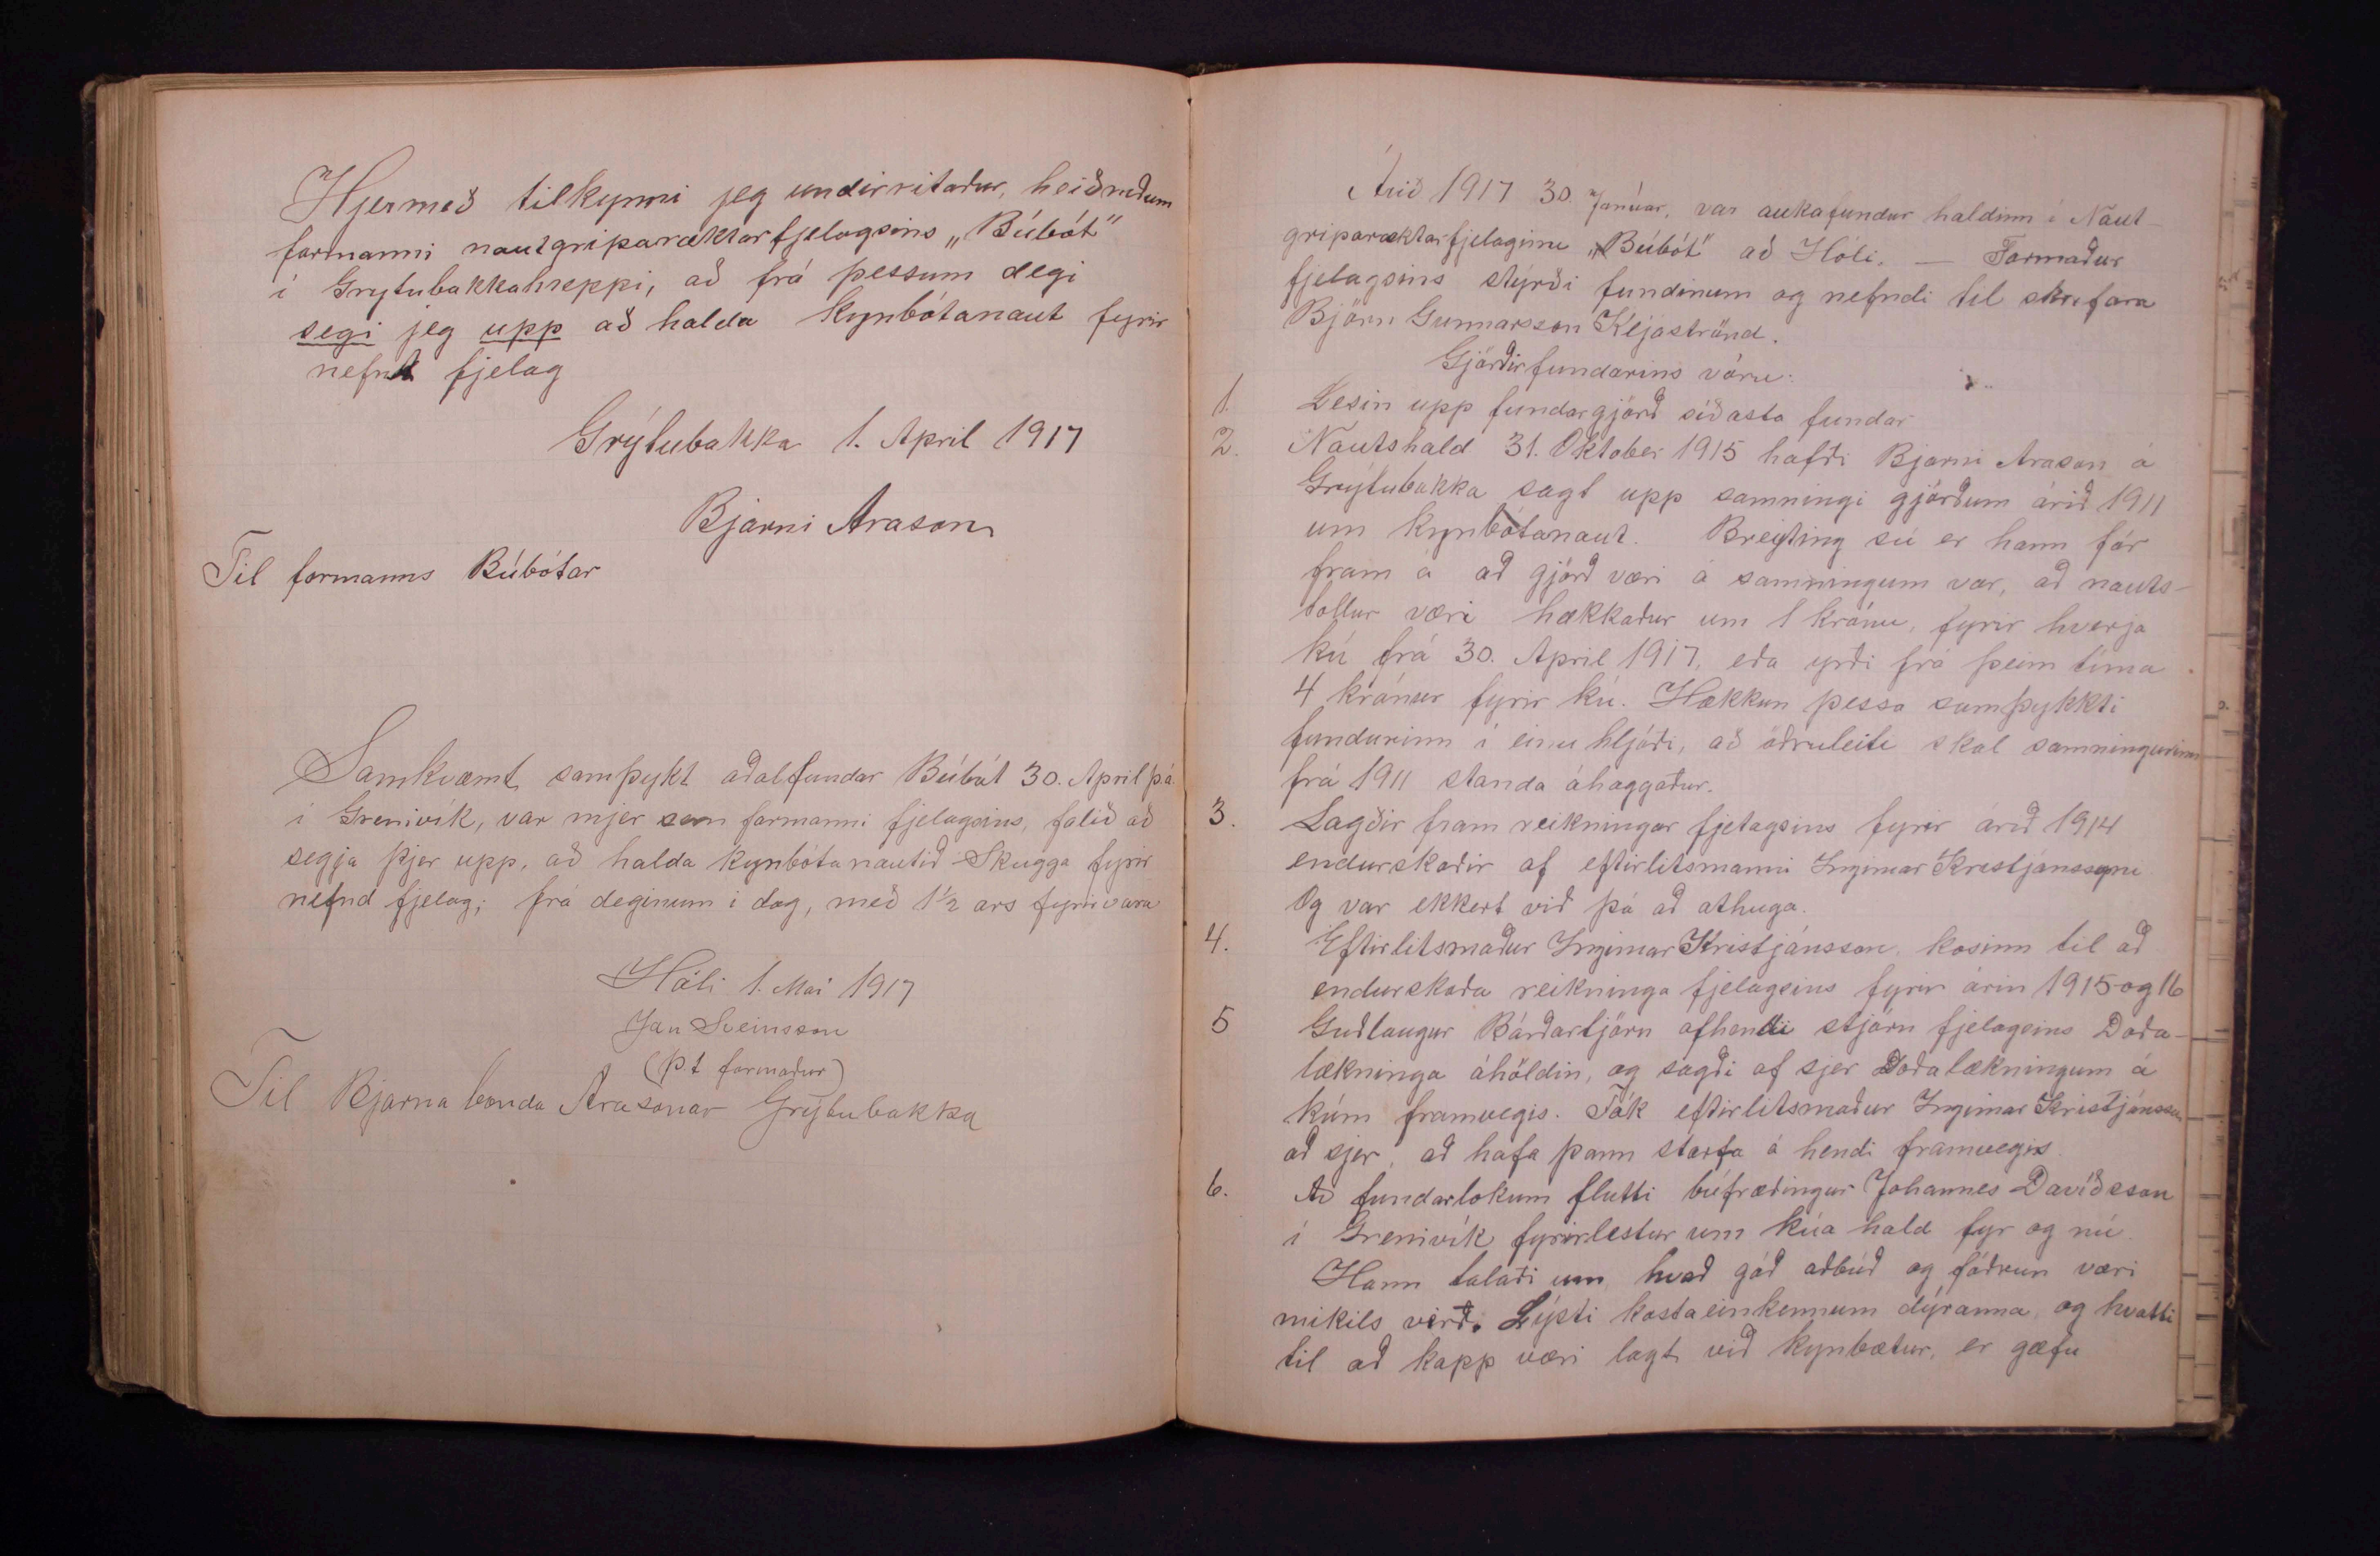 Hjermeð tilkynni jeg undirritaður, heiðruðum
formanni nautgriparæktarfjelagsins „Búbót"
í Grýtubakkahreppi, að frá þessum degi
segi jeg upp að halda Kynbótanaut fyrir
nefnt fjelag
Grýtubakka 1. April 1917
Bjarni Arason
Til formanns Búbótar
Samkvæmt samþykt aðalfundar Búbót 30. April þá
í Grenivík, var mjer sem formanni fjelagsins, falið að
segja þjer upp, að halda kynbótanautið Skugga fyrir
nefnd fjelag; frá deginum í dag, með 1½ ars fyrirvara
Hóli 1. Mai 1917
Jón Sveinsson
(p t formaður)
Til Bjarna bónda Arasonar Grýtubakka
Árið 1917 30. Janúar, var aukafundur haldinn í Naut-
griparæktarfjelaginu „Búbót" að Hóli. — Formaður
fjelagsins stýrði fundinum og nefndi til skrifara
Björn Gunnarsson Kljáströnd.
Gjörðir fundarins vóru:
1. Lesin upp fundargjörð síðasta fundar
2. Nautshald 31. Oktober 1915 hafði Bjarni Arason á
Grýtubakka sagt upp samningi gjörðum árið 1911
um kynbótanaut. Breyting sú er hann fór
fram á að gjörð væri á samningum var, að nauts-
tollur væri hækkaður um 1 krónu, fyrir hverja
kú frá 30. April 1917, eða yrði frá þeim tíma
4 krónur fyrir kú. Hækkun þessa samþykkti
fundurinn í einu hljóði, að öðruleiti skal samningurinn
frá 1911 standa óhaggaður.
3. Lagðir fram reikningar fjelagsins fyrir árið 1914
endurskoðir af eftirlitsmanni Ingimar Kristjánssyni
Og var ekkert við þá að athuga.
4. Eftirlitsmaður Ingimar Kristjánsson, kosinn til að
endurskoða reikninga fjelagsins fyrir árin 1915 og 16
5 Guðlaugur Bárðartjörn afhendi stjórn fjelagsins Doða-
lækninga áhöldin, og sagði af sjer Doðalækningum á
kúm framvegis. Tók eftirlitsmaður Ingimar Kristjánsson
að sjer, að hafa þann starfa á hendi framvegis.
6. Að fundarlokum flutti búfræðingur Johannes Davíðsson
í Grenivík fyrirlestur um kúa hald fyr og nú.
Hann talaði um hvað góð aðbúð og fóðrun væri
mikils virð. Lýsti kostaeinkennum dýranna, og hvatti
til að kapp væri lagt við kynbætur, er gæfu